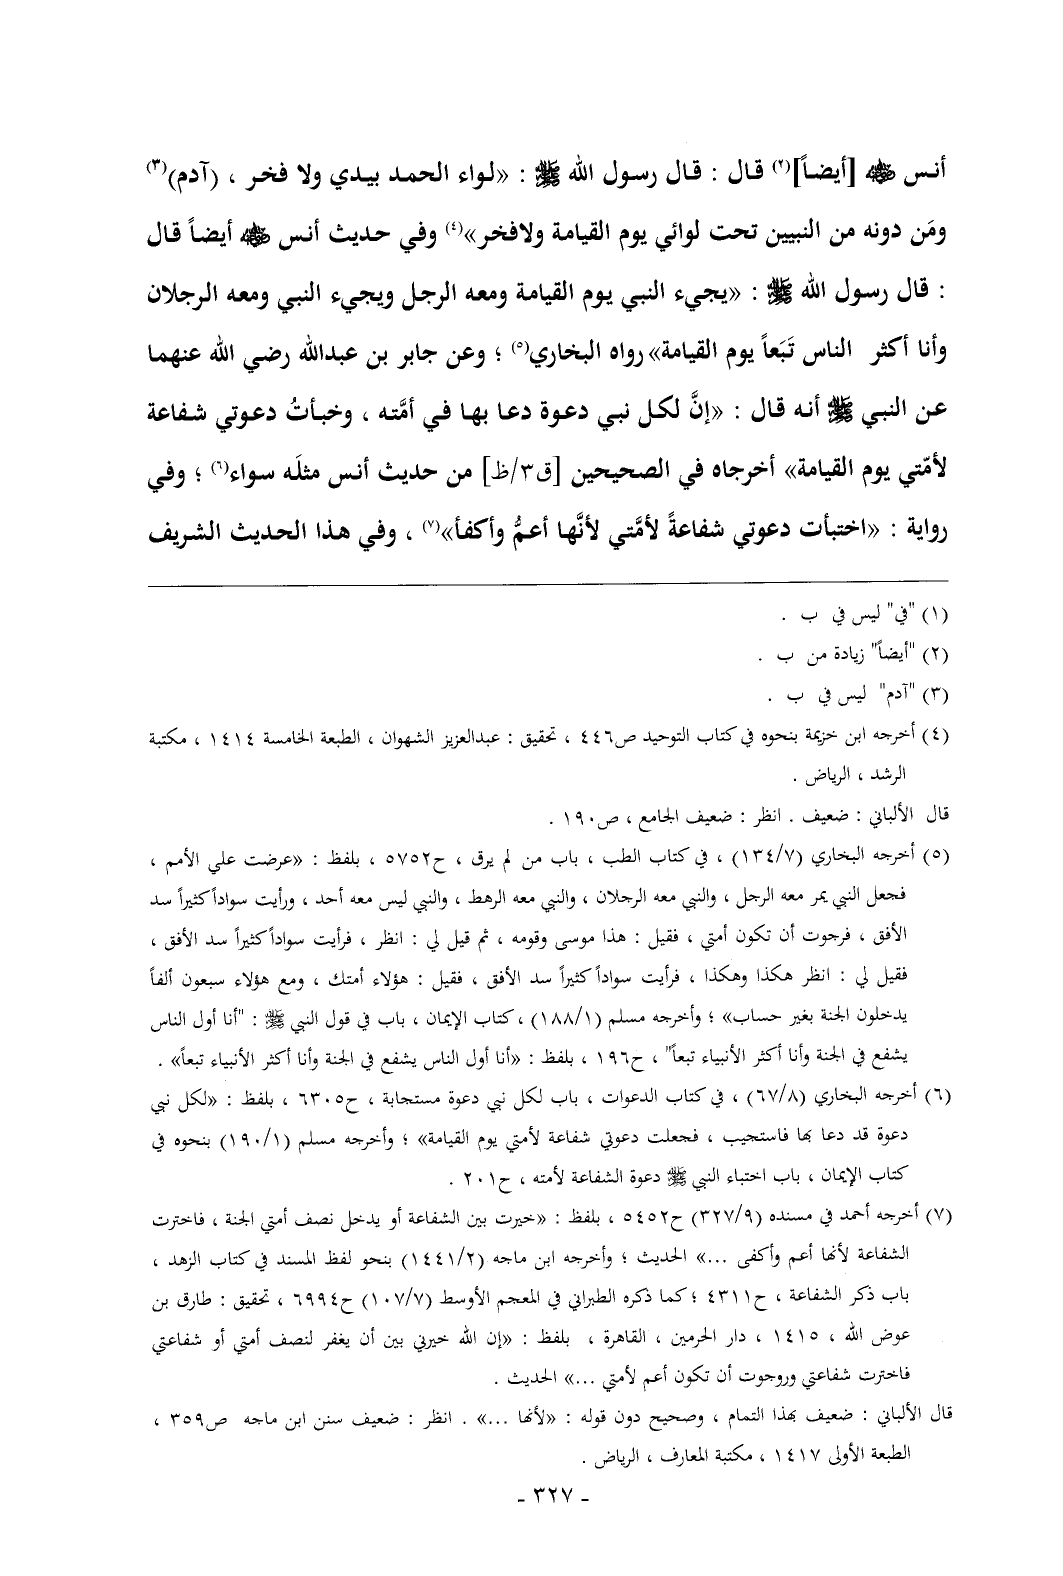 أنس ﷺ [أيضاً](٢) قال : قال رسول الله ﷺ : «لواء الحمد بيدي ولا فخر ، (آدم)(٣)
ومَن دونه من النبيين تحت لوائي يوم القيامة ولافخر»(٤) وفي حديث أنس ﷺ أيضاً قال
: قال رسول الله ﷺ : «يجيء النبي يوم القيامة ومعه الرجل ويجيء النبي ومعه الرجلان
وأنا أكثر الناس تَبَعاً يوم القيامة» رواه البخاري(٥) ؛ وعن جابر بن عبدالله رضي الله عنهما
عن النبي ﷺ أنه قال : «إنَّ لكل نبي دعوة دعا بها في أمَّته ، وخبأتُ دعوتي شفاعة
لأمّتي يوم القيامة» أخرجاه في الصحيحين [ق٣/ظ] من حديث أنس مثلَه سواء(٦) ؛ وفي
رواية : «اختبأت دعوتي شفاعةً لأمَّتي لأنَّها أعمُّ وأكفأ»(٧) ، وفي هذا الحديث الشريف
(١) "في" ليس في ب .
(٢) "أيضاً" زيادة من ب .
(٣) "آدم" ليس في ب .
(٤) أخرجه ابن خزيمة بنحوه في كتاب التوحيد ص٤٤٦ ، تحقيق : عبدالعزيز الشهوان ، الطبعة الخامسة ١٤١٤ ، مكتبة
الرشد ، الرياض .
قال الألباني : ضعيف . انظر : ضعيف الجامع ، ص١٩٠ .
(٥) أخرجه البخاري (١٣٤/٧) ، في كتاب الطب ، باب من لم يرق ، ح٥٧٥٢ ، بلفظ : «عرضت علي الأمم ،
فجعل النبي يمر معه الرجل ، والنبي معه الرجلان ، والنبي معه الرهط ، والنبي ليس معه أحد ، ورأيت سواداً كثيراً سد
الأفق ، فرجوت أن تكون أمتي ، فقيل : هذا موسى وقومه ، ثم قيل لي : انظر ، فرأيت سواداً كثيراً سد الأفق ،
فقيل لي : انظر هكذا وهكذا ، فرأيت سواداً كثيراً سد الأفق ، فقيل : هؤلاء أمتك ، ومع هؤلاء سبعون ألفاً
يدخلون الجنة بغير حساب» ؛ وأخرجه مسلم (١٨٨/١) ، كتاب الإيمان ، باب في قول النبي ﷺ : "أنا أول الناس
يشفع في الجنة وأنا أكثر الأنبياء تبعاً" ، ح١٩٦ ، بلفظ : «أنا أول الناس يشفع في الجنة وأنا أكثر الأنبياء تبعاً» .
(٦) أخرجه البخاري (٦٧/٨) ، في كتاب الدعوات ، باب لكل نبي دعوة مستجابة ، ح٦٣٠٥ ، بلفظ : «لكل نبي
دعوة قد دعا بها فاستجيب ، فجعلت دعوتي شفاعة لأمتي يوم القيامة» ؛ وأخرجه مسلم (١٩٠/١) بنحوه في
كتاب الإيمان ، باب اختباء النبي ﷺ دعوة الشفاعة لأمته ، ح٢٠١ .
(٧) أخرجه أحمد في مسنده (٣٢٧/٩) ح٥٤٥٢ ، بلفظ : «خيرت بين الشفاعة أو يدخل نصف أمتي الجنة ، فاخترت
الشفاعة لأنها أعم وأكفى ...» الحديث ؛ وأخرجه ابن ماجه (١٤٤١/٢) بنحو لفظ المسند في كتاب الزهد ،
باب ذكر الشفاعة ، ح٤٣١١ ؛ كما ذكره الطبراني في المعجم الأوسط (١٠٧/٧) ح٦٩٩٤ ، تحقيق : طارق بن
عوض الله ، ١٤١٥ ، دار الحرمين ، القاهرة ، بلفظ : «إن الله خيرني بين أن يغفر لنصف أمتي أو شفاعتي
فاخترت شفاعتي وروجوت أن تكون أعم لأمتي ...» الحديث .
قال الألباني : ضعيف بهذا التمام ، وصحيح دون قوله : «لأنها ...» . انظر : ضعيف سنن ابن ماجه ص٣٥٩ ،
الطبعة الأولى ١٤١٧ ، مكتبة المعارف ، الرياض .
- ٣٢٧ -